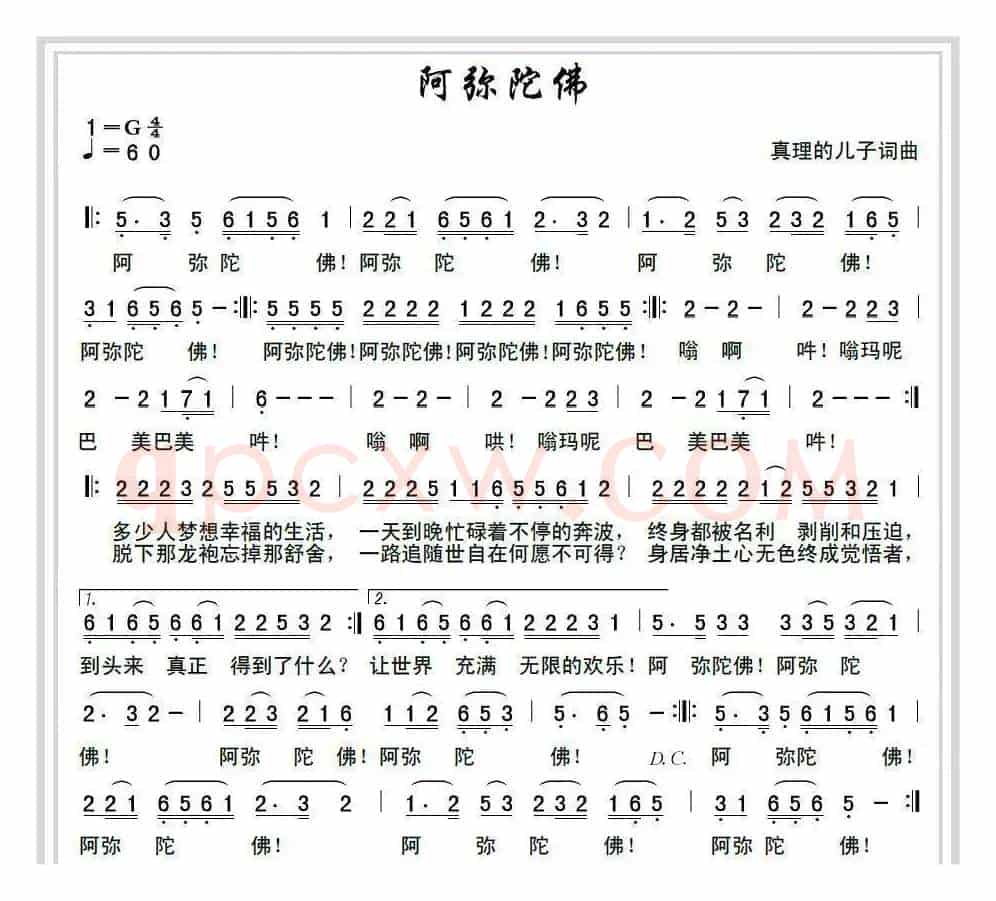 阿弥陀佛
1=G 4/4
♩=60
真理的儿子词曲
‖: 5· 3 5 6156 1 | 2 21 6561 2· 32 | 1· 2 53 232 165 |
阿 弥陀 佛! 阿弥 陀 佛! 阿 弥 陀 佛!
31 656 5 - :‖: 5555 2222 1222 1655 :‖: 2 - 2 - | 2 - 2 23 |
阿弥陀 佛! 阿弥陀佛!阿弥陀佛!阿弥陀佛!阿弥陀佛! 嗡 啊 吽! 嗡玛呢
2 - 2 171 | 6 - - - | 2 - 2 - | 2 - 2 23 | 2 - 2 171 | 2 - - - :‖
巴 美巴美 吽! 嗡 啊 哄! 嗡玛呢 巴 美巴美 吽!
qpcxw.COM
‖: 2223 255532 | 2225 116556 1 2 | 22222 1255321 |
多少人梦想幸福的生活, 一天到晚忙碌着不停的奔波, 终身都被名利 剥削和压迫,
脱下那龙袍忘掉那舒舍, 一路追随世自在何愿不可得? 身居净土心无色终成觉悟者,
1. 2.
6165 661 22532 :‖ 6165 661 222231 | 5· 5 33 335 321 |
到头来 真正 得到了什么? 让世界 充满 无限的欢乐! 阿 弥陀佛! 阿弥 陀
2· 3 2 - | 223 216 112 653 | 5· 65 - :‖: 5· 35 6156 1 |
佛! 阿弥 陀 佛! 阿弥 陀 佛! D.C. 阿 弥陀 佛!
2 21 6561 2· 3 2 | 1· 2 53 232 165 | 31 656 5 - :‖
阿弥 陀 佛! 阿 弥 陀 佛! 阿弥 陀 佛!